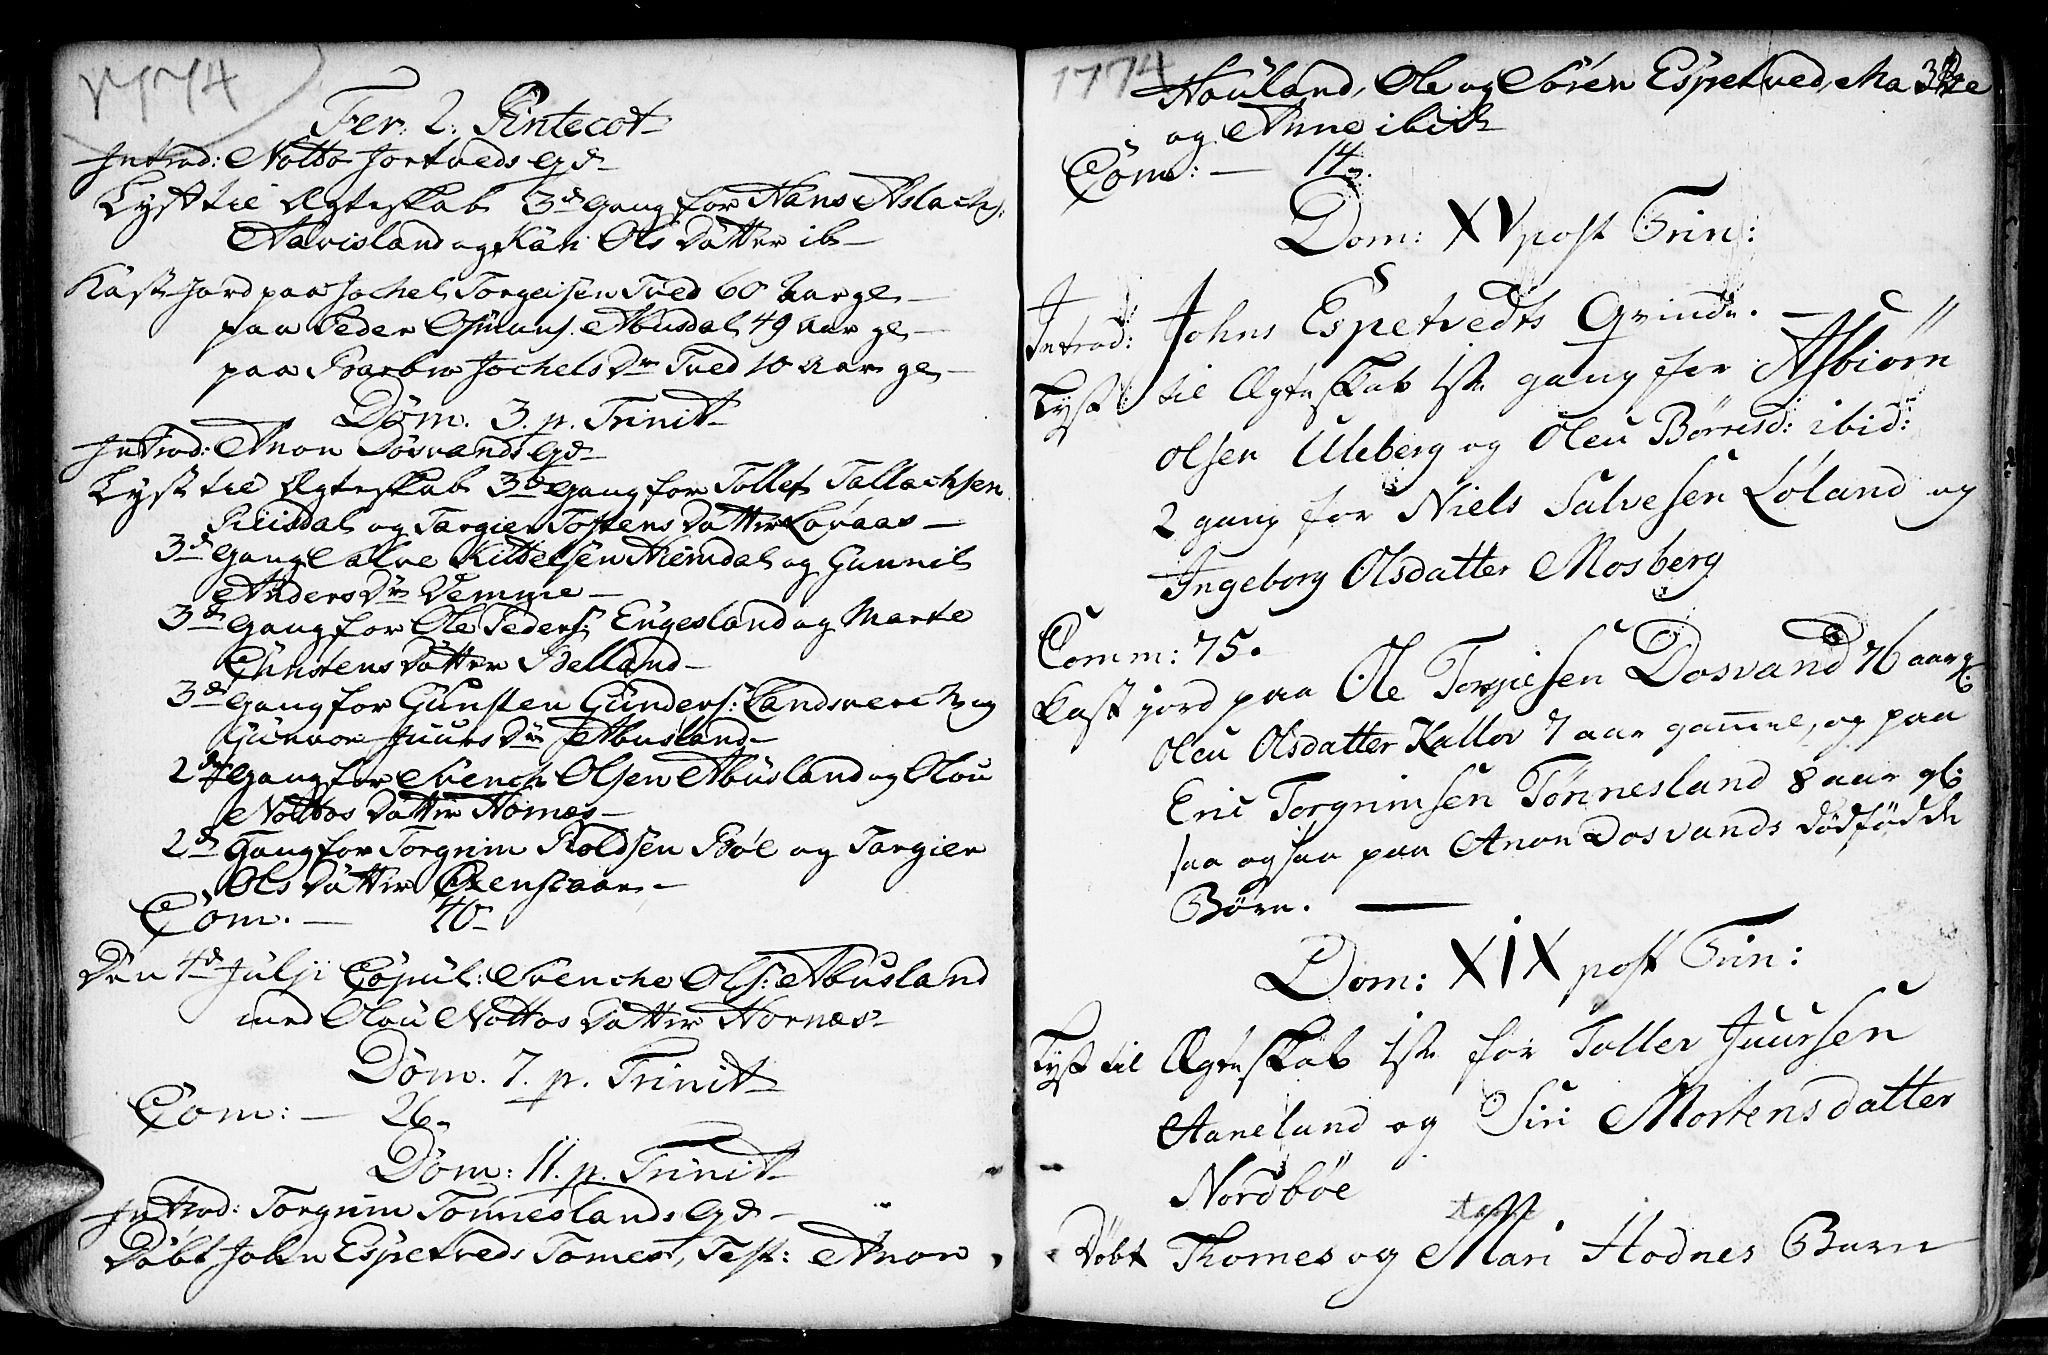 1774
Fer: 2. Pintecot
Introd: Notto Jortveds Qd
Lyst til Ægteskab 3de Gang for Hans Aslachs:
Navisland og Kari Ols Datter ib
Kast Jord paa Jochel Torgeisen Tved 60 Aar gl
paa Peder Asmuns. Abusdal 49 Aar gl
paa Barbro Jochels Dr Tved 10 Aar gl
Dom. 3. p. Trinit
Introd: Anon Dosvands Qd
Lyst til Ægteskab 3de Gang for Tollef Tallachsen
Riisdal og Targier Tostens Datter Lovaas
3de Gang Salve Kittelsen Hiemdal og Gunnil
Anders Dr Vemme
3de Gang for Ole Peders Engesland og Marte
Christens Datter Belland
3de Gang for Gunsten Gunders: Landsverch og
Gunvor Juurs Dr Abusland
2de Gang for Svenche Olsen Abusland og Olou
Nottos Datter Hornes
2de Gang for Torgrim Roldsen Bøe og Targier
Ols Datter
Com. 40
Den 4de Julji Copul: Svenche Ols: Abusland
med Olou Nottos Datter Hornæs
Dom. 7. p. Trinit
Com: 26
Dom: 11. p. Trinit
Introd: Torgrim Tonneslands Qd
Døbt John Espetveds Tomes, Test: Anon
1774
Houland, Ole og Sören Espetved,
og Anne ibid
Com: 14
Dom: XV post Trin:
Introd: Johns Espetvedts Qvinde.
Lyst til Ægteskab 1ste gang for Asbiørn
Olsen Uleberg og Olou Börresd: ibid:
2 gang for Niels Salvesen Løland og
Ingeborg Olsdatter Mosberg
Comm: 75.
Kast jord paa Ole Torgiesen Dosvand 76 aar g:
Olou Olsdatter Kallov 7 aar gammel, og paa
Eric Torgrimsen Tønnesland 8 aar gl:
saa ogsaa paa Anon Dosvands dödfødde
Børn.
Dom: XIX post Trin:
Lyst til Ægteskab 1ste for Tallev Juursen
Aaneland og Siri Mortensdatter
Nordbøe
Døbt Thomes og Mari Hodnes Barn